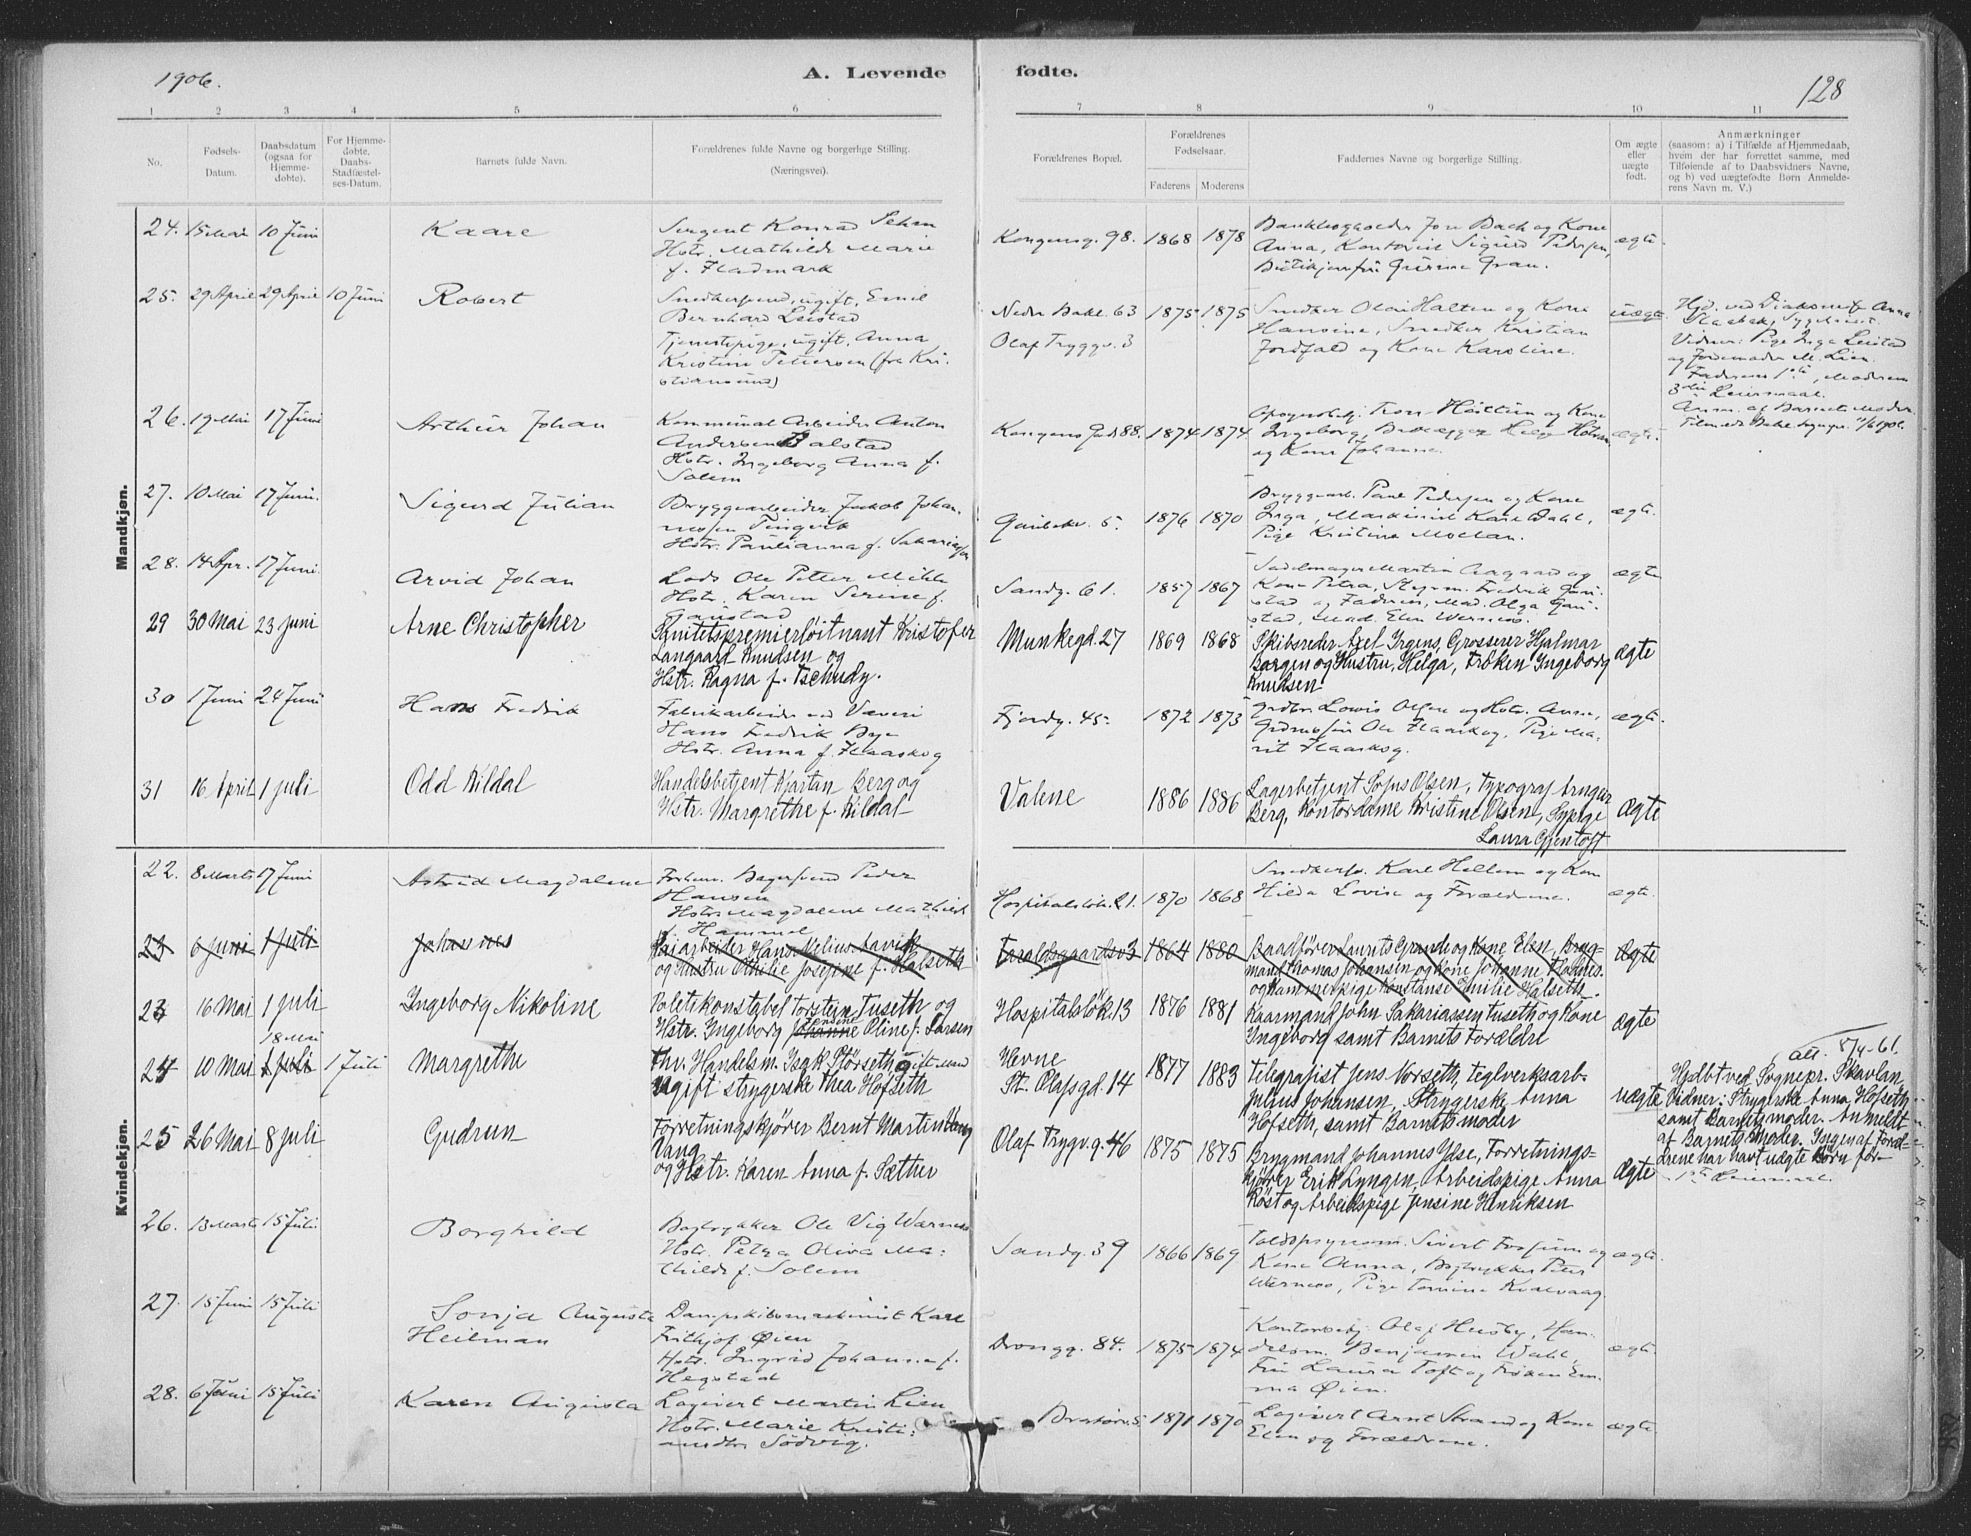 1906.
A. Levende fødte.
128
1 2 3 4 5 6 7 8 9 10 11
No.
Fødsels-
Datum.
Daabsdatum
(ogsaa for
Hjemme-
døbte).
For Hjemme-
døbte,
Daabs-
Stadfæstel-
ses-Datum.
Barnets fulde Navn.
Forældrenes fulde Navne og borgerlige Stilling.
(Næringsvei).
Forældrenes Bopæl.
Forældrenes
Fødselsaar.
Faderens Moderens
Faddernes Navne og borgerlige Stilling.
Om ægte
eller
uægte
født.
Anmærkninger
(saasom: a) i Tilfælde af Hjemmedaab,
hvem der har forrettet samme, med
Tilføiende af to Daabsvidners Navne,
og b) ved uægtefødte Børn Anmelde-
rens Navn m. V.)
Mandkjøn.
24. 15 Mai 10 Juni
Kaare
Sergent Konrad
Hstr. Mathilde Marie
f. Fladmark
Kongensg. 98. 1868 1878
Bankbogholder Jon Bach og Kone
Anna, Kontorist Sigurd Pedersen,
Gran.
ægte.
25. 29 April 29 April 10 Juni
Robert
Snedkersvend, ugift, Emil
Bernhard Leistad
Tjenestepige, ugift, Anna
Kristine Pettersen (fra Kri-
stiansund)
Nedr. Bakl. 63
Olaf Tryggv. 3
1875 1875
Snedker Olai Halten og Kone
Hansine, Snedker Kristian
Jordfald og Kone Karoline.
uægte
Hjd. ved Diakonisse Anna
Vidner: Pige Inga Leistad
og Jordemoder M. Lien.
Faderens 1ste, Moderens
3die Leiermaal.
Anm. af Barnets Moder.
26. 19 Mai 17 Juni
Arthur Johan
Kommunal Arbeider Anton
Andersen Balstad
Hstr. Ingeborg Anna f.
Solem
Kongens Gd. 88. 1874 1874
og Kone
Ingeborg,
og Kone Johanna.
ægte.
27. 10 Mai 17 Juni.
Sigurd Julian
Bryggearbeider Jakob Johan-
nesen Tingvik
Hstr. Paulianna f. Sakariassen
Gaubekv. 5. 1876 1870
Bryggearb. Paul Pedersen og Kone
Inga, Maskinist Karl Dahl,
Pige Kristine Moehan.
ægte.
28. 14 Apr. 17 Juni.
Arvid Johan
Lods Ole Petter Mikk
Hstr. Karen Serine f.
Gaustad
Sandg. 61. 1857 1867
Sadelmager Martin Aagaard og
Kone Petra, Styrm. Fredrik Gau-
stad og Faderen, Mad. Olga Gau-
stad, Mad. Elen Werness.
ægte
29 30 Mai 23 Juni
Arne Christopher
Premierløitnant Kristofer
Langaard Knudsen og
Hstr. Ragna f. Tschudy.
Munkegd. 27 1869 1868
Skibsreder Axel Irgens, Grosserer Hjalmar
Borgen og Hustru, Helga, Frøken Ingeborg
Knudsen
ægte
30 1 Juni 24 Juni
Hans Fredrik
Fabrikarbeider ved Væveri
Hans Fredrik Bye
Hstr. Anna f. Flaaskog
Fjordg. 45. 1872 1873
Lovis Olsen og Hstr. Anna,
Ole Flaaskog, Pige Ma-
rit Flaaskog.
ægte.
31 16 April 1 Juli
Odd Kildal
Handelsbetjent Kjartan Berg og
Hstr. Margrethe f. Kildal
Valene 1886 1886
Lagerbetjent Sofus Olsen, Typograf Arngeir
Berg, Kontordame Kristine Olsen, Sypige
Laura Gjentoft
Ægte
Kvindekjøn.
22. 8 Marts 17 Juni
Astrid Magdalene
Forhenv. Bagersvend Peder
Hansen
Hstr. Magdalene Mathilde
f. Hammel
Hospitalsløk. 21. 1870 1868
Snedkersv. Karl Hellem og Kone
Hilda Lovise og Forældrene.
ægte.
23 6 Juni 1 Juli
Johannes
Kaiarbeider Hans Nelius Aavik
og Hustru Othilie Josefine f. Halseth
Taraldsgaardsv. 3 1864 1880
Baadfører Laurits Grande og Kone Elen, Bryg-
mand Thomas Johansen og Kone Johanne
og Hammerpige Konstanse Emilie Halseth.
Ægte
23 16 Mai 1 Juli
Ingeborg Nikoline
Politikonstabel Torstein Tuseth og
Hstr. Ingeborg Johanne Jensine Oline f. Larsen
Hospitalsløk. 13 1876 1881
Kaarmand John Sakariassen Tuseth og Kone
Ingeborg samt Barnets Forældre
ægte
24 10 Mai 18 Mai 1 Juli 1 Juli
Margrethe
Fhv. Handelsm. Isak Størseth gift Mand
ugift Strygerske Thea Hofseth
Hevne
St. Olafsgd. 14
1877 1883
Telegrafist Jens Vorseth, Teglverksarb.
Julius Johansen, Strygerske Anna
Hofseth, samt Barnets moder
uægte
att. 5/4-61.
Hjdbt ved Sognepr. Skavlan
Vidner: Strygerske Anna Hofseth
samt Barnets moder. Anmeldt
af Barnets Moder. Ingen af Foræl-
drene har havt uægte Børn før
1ste Leiermaal.
25 26 Mai 8 Juli
Gudrun
Forretningskjører Bernt Martin
Vang
og Hstr. Karen Anna f. Sæther
Olaf Trygv. g. 46 1875 1875
Brygmand Johannes Ydse, Forretnings-
kjører Erik Lyngen, Arbeidspige Anna
Røst og Arbeidspige Jensine Henriksen
Ægte
26. 13 Marts 15 Juli
Borghild
Bogtrykker Ole Vig Wærness
Hstr. Petra Oliva Ma-
thilde f. Solem
Sandg. 39 1866 1869
Toldopsynsm. Sivert Fossum og
Kone Anna, Bogtrykker Peter
Werness, Pige Tomine Kvalvaag.
ægte.
27. 15 Juni 15 Juli
Sonja Augusta
Heilman
Dampskibsmaskinist Karl
Frithjof Øien
Hstr. Ingrid Johanna f.
Hegstad
Drongg. 84. 1875 1874
Kontorbetj. Olaf Husby, Han-
delsm. Benjamin Wahl,
Fru Laura Toft og Frøken Em-
ma Øien.
ægte.
28. 6 Juni 15 Juli
Karen Augusta
Logivert Martin Lien
Hstr. Marie Kristi-
Södvig.
1871 1870
Logivert Arnt Strand og Kone
Elen og Forældrene.
ægte